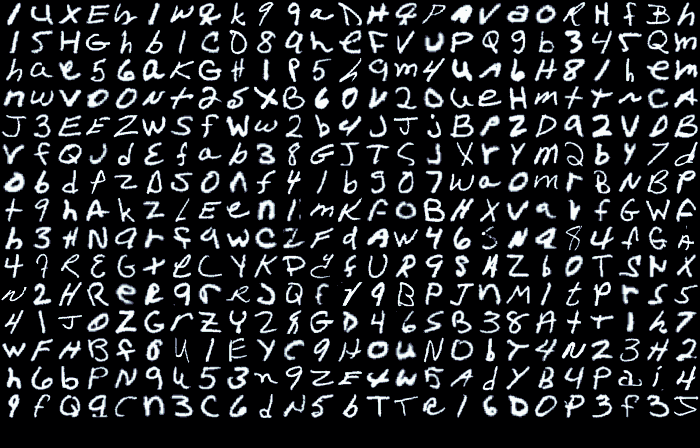 1 U X E h 1 W 2 k 9 9 a D H 9 P A V a O R H f B h
1 5 H G h b 1 C 0 8 9 h e F V U P Q 9 b 3 4 5 Q m
h a e 5 6 a K G H 1 P 5 h 9 m 4 U n 6 H 8 1 h e m
n w V O O N t 2 5 X B 6 0 V 2 0 U e H m t r n C A
J 3 E E Z W S f W w 2 b 4 J J j B P Z D 9 2 V D E
r f Q J d E f a b 3 8 G J T S J X r Y m 2 b Y 7 d
0 6 d f Z D 5 0 n f 4 1 b 9 0 7 W a 0 m r B N B P
t 9 h A k Z L E e n 1 m K F O B H X V a r f G W F
h 3 H N 9 r f 9 W C Z F d A W 4 6 S N 9 8 4 f G A
4 7 R E G t e C Y K P f U R 9 S A Z b 0 T S N X
N 2 H R e R 9 r R J Q F Y 9 B P J n M 1 t P r S 5
4 1 J 0 Z G r Z Y 2 8 G D 4 6 S B 3 8 A t r 1 h 7
W F H B f 8 U 1 E Y C 9 H O U N O b Y 4 N 2 3 H 2
h 6 b P N 9 U 5 3 n 9 Z E t W 5 A d Y B 4 P a i 4
9 f Q 9 C n 3 C 6 d N 5 b T T R 1 6 D O P 3 f 3 5